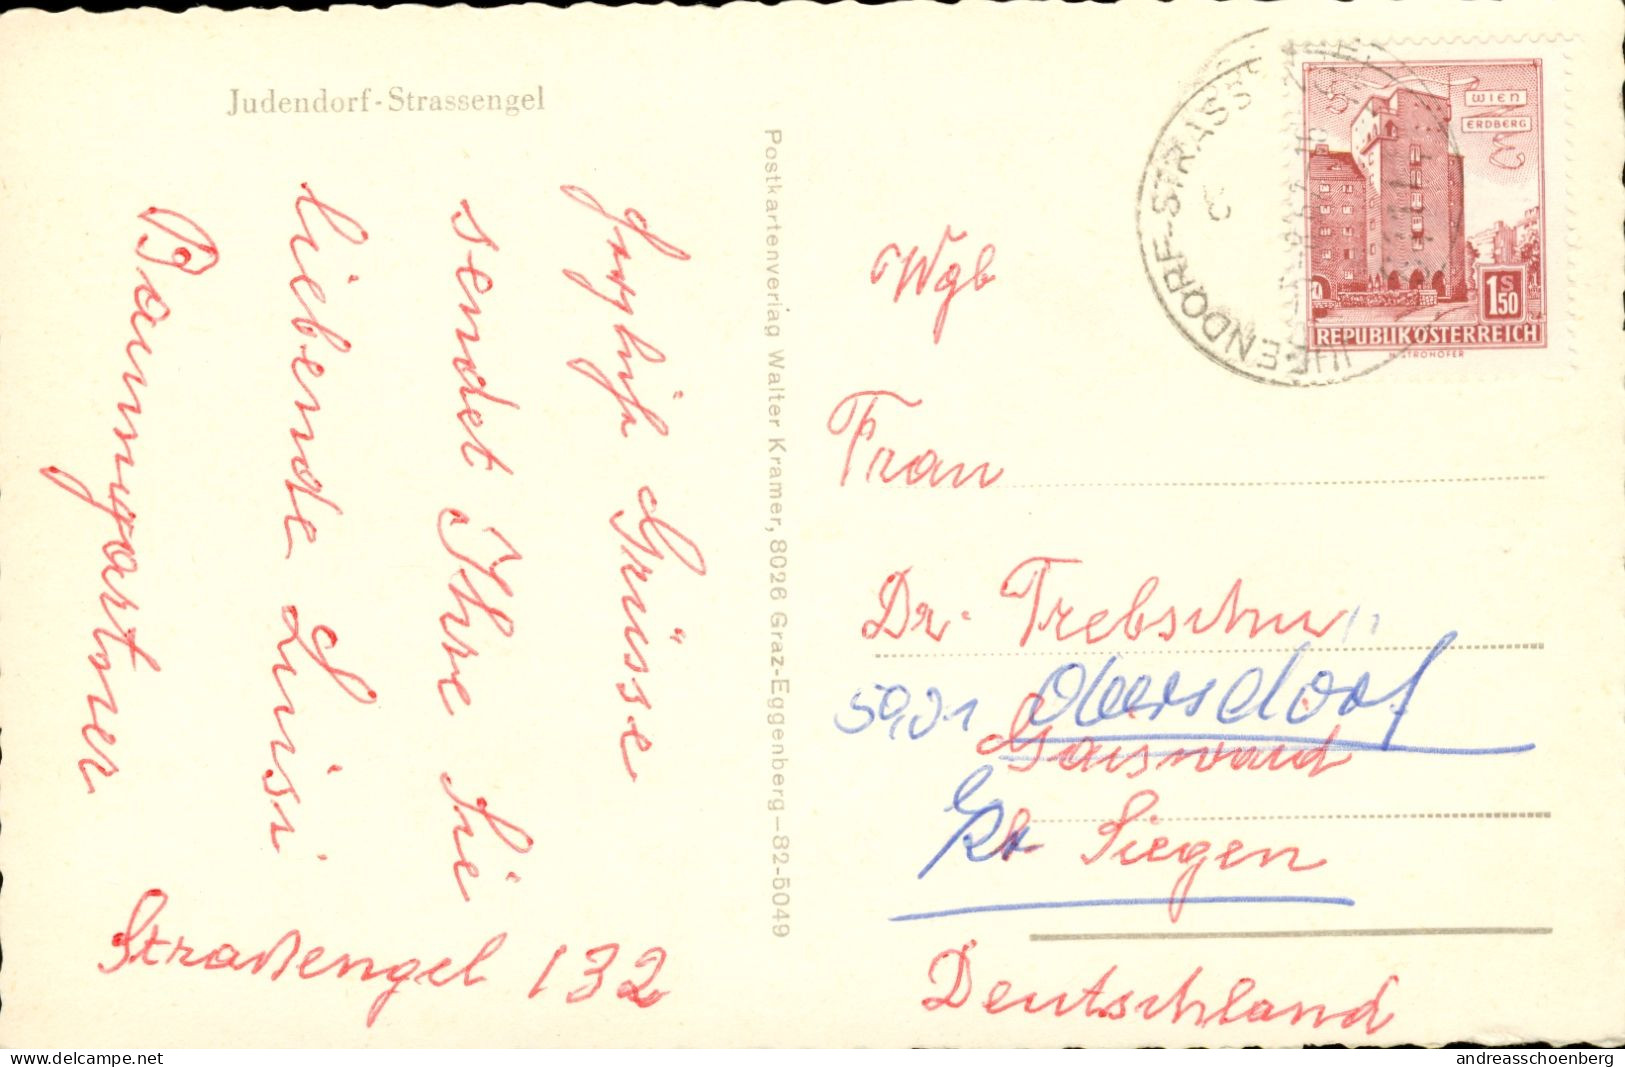 Judendorf-Strassengel
Herzlich Grüsse
sendet Ihre Sie
liebende Luisi
Baumgartner
Straßengel 132
Postkartenverlag Walter Kramer, 8026 Graz-Eggenberg-82-5049
JUDENDORF-STRASS
WIEN
ERDBERG
1 S 50
REPUBLIK ÖSTERREICH
H. STROHOFER
Wgb
Frau
Dr. Trebschu
5901 Obersdorf
Gaisweid
Kr Siegen
Deutschland
www.delcampe.net
andreasschoenberg